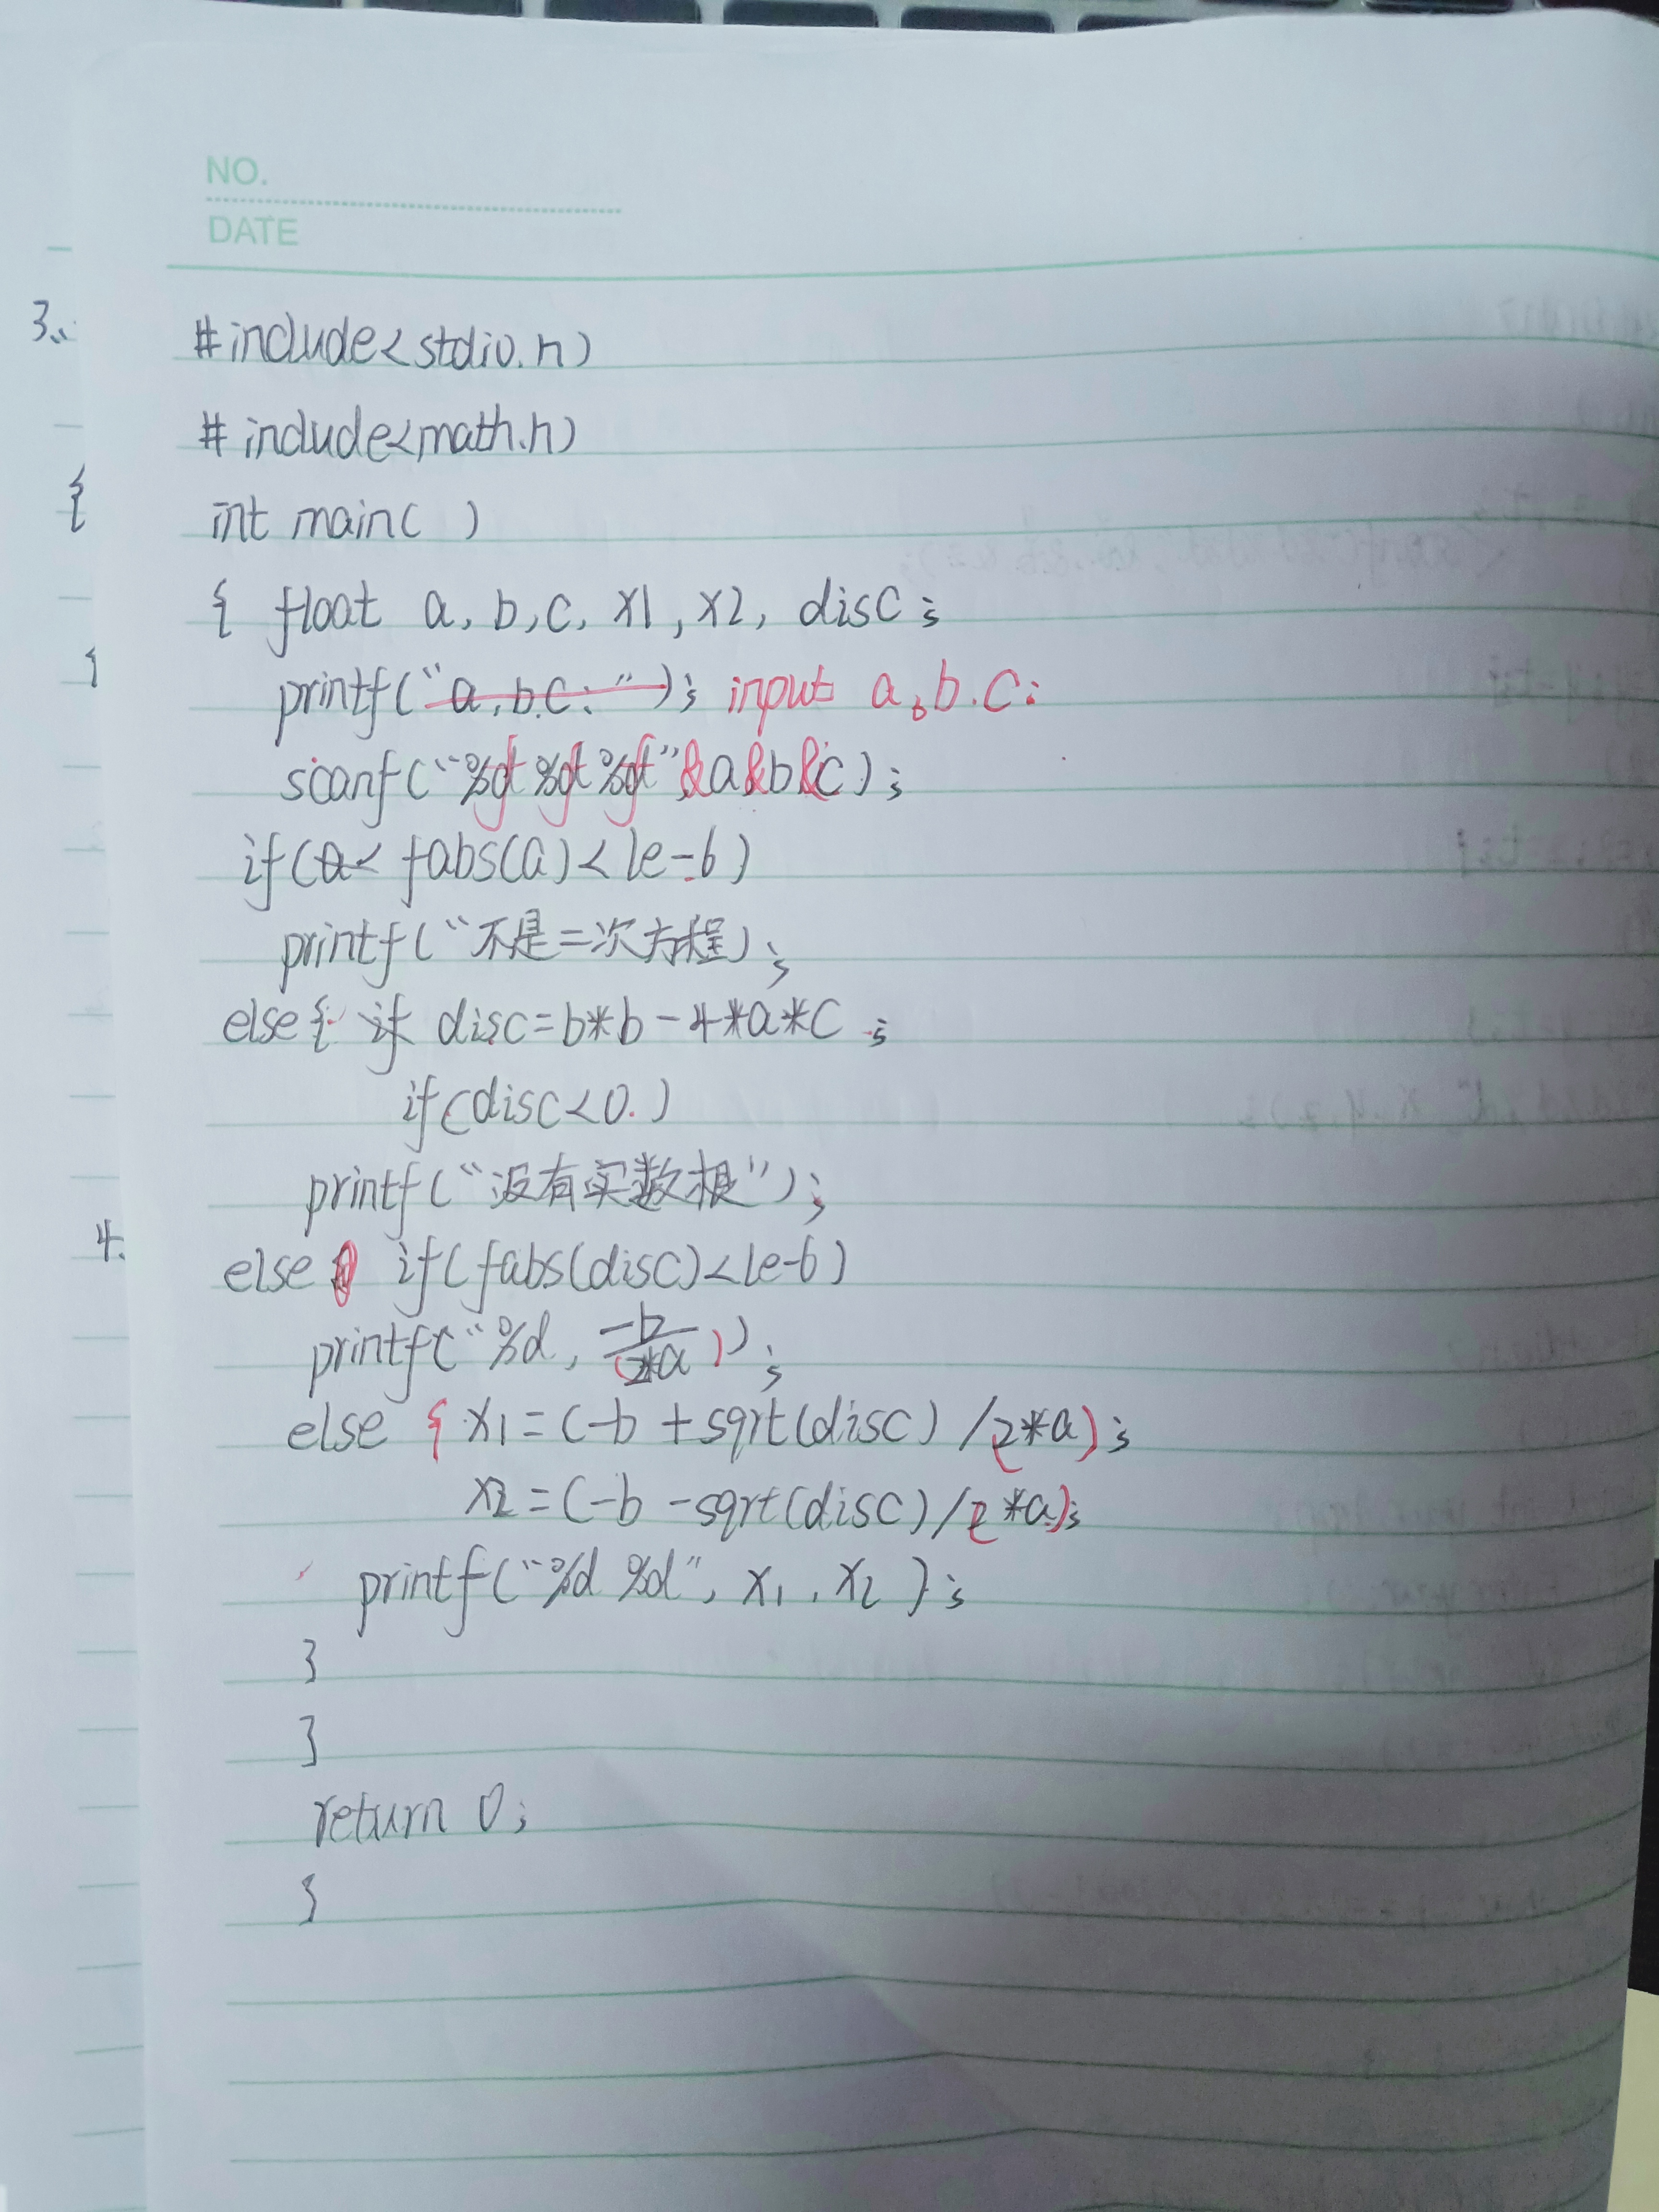 NO.
DATE
3、
#include<stdio.h)
#include<math.h)
{
int main( )
{ float a, b, c, x1, x2, disc;
1
printf("a,b.c:"); input a,b.c:
scanf("%f %f %f"&a&b&c);
if(a< fabs(a)<1e-6)
printf("不是二次方程);
else{ if disc=b*b-4*a*c ;
if(disc<0.)
printf("没有实数根");
4.
else if(fabs(disc)<1e-6)
printf("%d, -b/(2*a));
else { x1=(-b+sqrt(disc) /(2*a);
x2=(-b-sqrt(disc)/(2*a);
printf("%d %d", x1, x2 );
}
}
return 0;
}